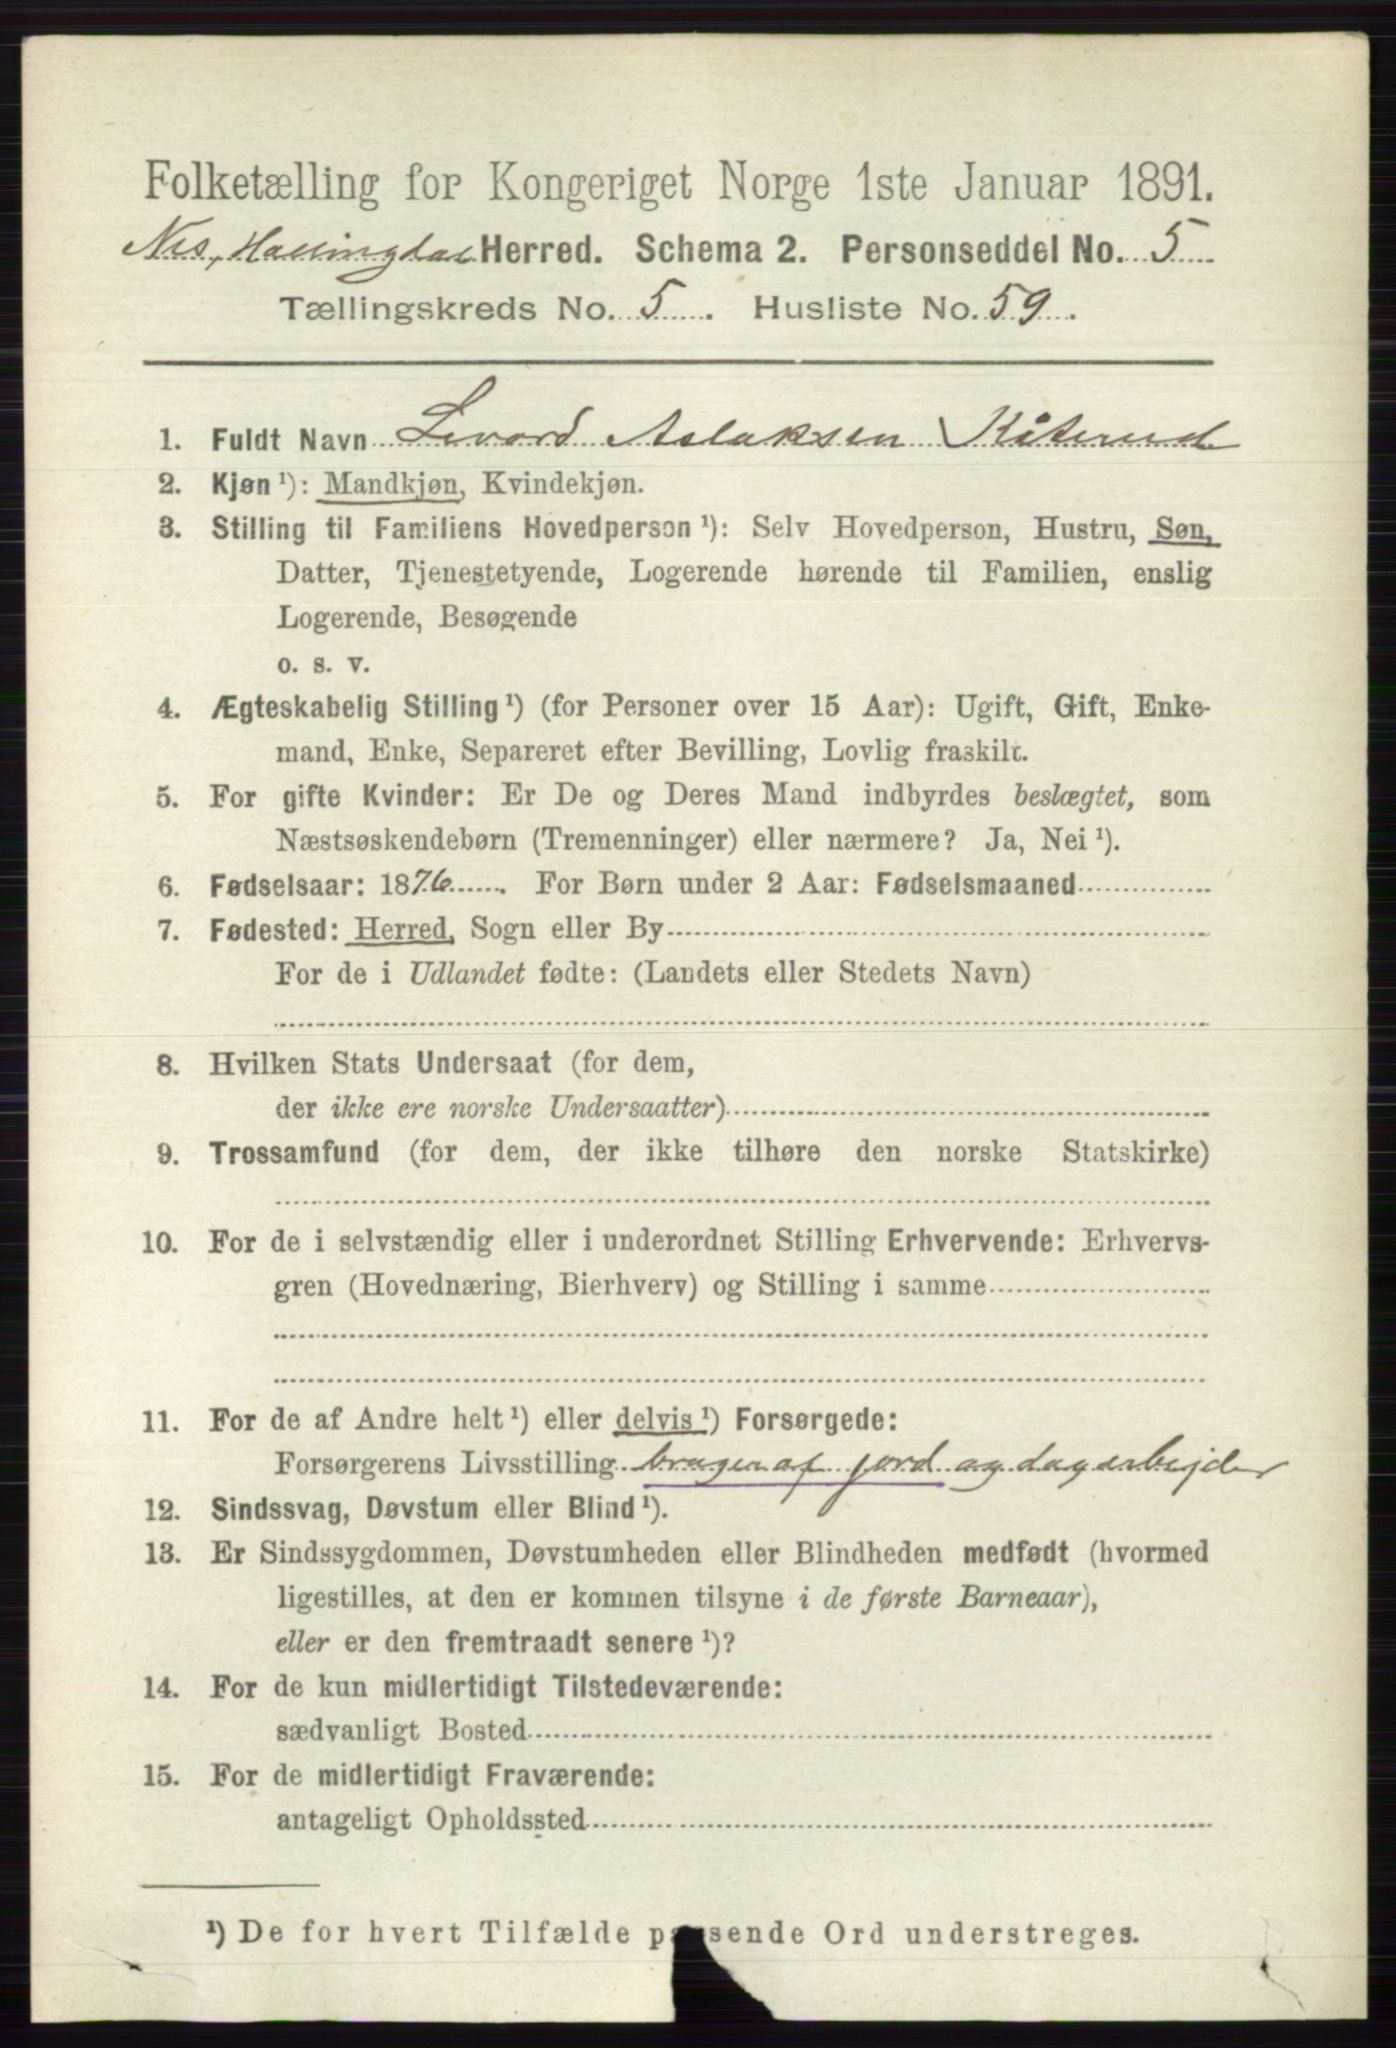 Folketælling for Kongeriget Norge 1ste Januar 1891.
Nes, Hallingdal Herred. Schema 2. Personseddel No. 5
Tællingskreds No. 5. Husliste No. 59.
1. Fuldt Navn Levord Aslaksen Kiterud
2. Kjøn ¹): Mandkjøn, Kvindekjøn.
3. Stilling til Familiens Hovedperson ¹): Selv Hovedperson, Hustru, Søn,
Datter, Tjenestetyende, Logerende hørende til Familien, enslig
Logerende, Besøgende
o. s. v.
4. Ægteskabelig Stilling ¹) (for Personer over 15 Aar): Ugift, Gift, Enke-
mand, Enke, Separeret efter Bevilling, Lovlig fraskilt.
5. For gifte Kvinder: Er De og Deres Mand indbyrdes beslægtet, som
Næstsøskendebørn (Tremenninger) eller nærmere? Ja, Nei ¹).
6. Fødselsaar: 1876. For Børn under 2 Aar: Fødselsmaaned
7. Fødested: Herred, Sogn eller By
For de i Udlandet fødte: (Landets eller Stedets Navn)
8. Hvilken Stats Undersaat (for dem,
der ikke ere norske Undersaatter)
9. Trossamfund (for dem, der ikke tilhøre den norske Statskirke)
10. For de i selvstændig eller i underordnet Stilling Erhvervende: Erhvervs-
gren (Hovednæring, Bierhverv) og Stilling i samme
11. For de af Andre helt ¹) eller delvis ¹) Forsørgede:
Forsørgerens Livsstilling bruger af jord og dagarbejder
12. Sindssvag, Døvstum eller Blind ¹).
13. Er Sindssygdommen, Døvstumheden eller Blindheden medfødt (hvormed
ligestilles, at den er kommen tilsyne i de første Barneaar),
eller er den fremtraadt senere ¹)?
14. For de kun midlertidigt Tilstedeværende:
sædvanligt Bosted
15. For de midlertidigt Fraværende:
antageligt Opholdssted
¹) De for hvert Tilfælde passende Ord understreges.